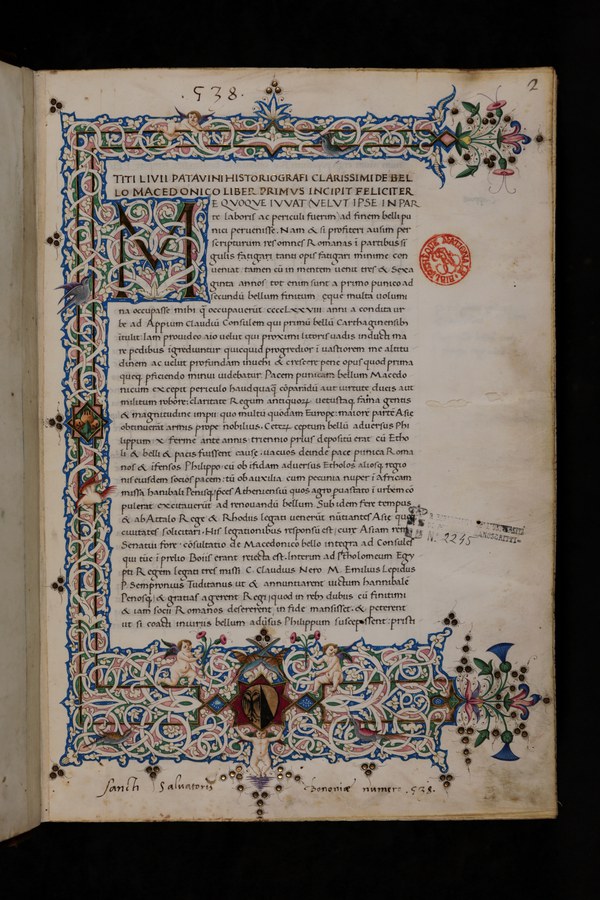 .538.
2
TITI LIVII PATAVINI HISTORIOGRAFI CLARISSIMI DE BEL
LO MACEDONICO LIBER PRIMVS INCIPIT FELICITER
ME QVOQVE IVVAT VELVT IPSE IN PAR
te laboris ac periculi fuerim ad finem belli pu
nici peruenisse. Nam & si profiteri ausum per
scripturum res omnes Romanas i partibus si
gulis fatigari tanti opis fatigari minime con
ueniat tamen cū in mentem uenit tres & sexa
ginta annos tot enim sunt a primo punico ad
secundū bellum finitum eque multa uolumi
na occupasse mihi q occupauerūt cccclxxxviii. anni a condita ur
be ad Appium Claudiū Consulem qui primū bellū Carthaginensib
itulit. Iam prouideo aīo uelut qui proximi litoris uadis inducti ma
re pedibus igrediuntur quicquid progredior i uastiorem me altitu
dinem ac uelut profundam inuehi & crescere pene opus quod prima
queq; pficiendo minui uidebatur. Pacem punicam bellum Macedo
nicum excepit periculo haudquaq̄ cōparādū aut uirtute ducis aut
militum robore: claritate Regum antiquoꝝ uetustaq; fama gentis
& magnitudine imperii quo multū quōdam Europe: maiorē partē Asie
obtinuerāt armis prope nobilius. Ceterū ceptum bellū aduersus Phi
lippum x ferme ante annis: triennio prius depositū erat cū Etho
li & belli & pacis fuissent cause: uacuos deinde pace punica Roma
nos & ifensos Philippo: cū ob ifidam aduersus Etholos aliosq; regio
nis eiusdem socios pacem: tū ob auxilia cum pecunia nuper i Africam
missa hanibali Penisq; pces Atheniensiū quos agro puastato i urbem cō
pulerat excitauerūt ad renouandū bellum. Sub idem fere tempus
& ab Attalo Rege & Rhodiis legati uenerūt nūtiantes Asie quoq;
ciuitates solicitari. His legationibus responsū est: curē Asiam rem
Senatui fore: cōsultatio de Macedonico bello integra ad Consules
qui tūc i prelio Boiis erant reiecta est. Interim ad Ptholomeum Egy
pti Regem legati tres missi C. Claudius Nero M. Emilius Lepidus
P. Sempronius Tuditanus ut & annuntiarent uictum hannibalē
Penosq; & gratias agerent Regi quod in rebs dubiis cū finitimi
& iam socii Romanos desererent in fide mansisset: & peterent
ut si coacti iniuriis bellum aduersus Philippum suscepissent: pristi
N. 2245
Sancti Salvatoris Bononiæ numero .538.